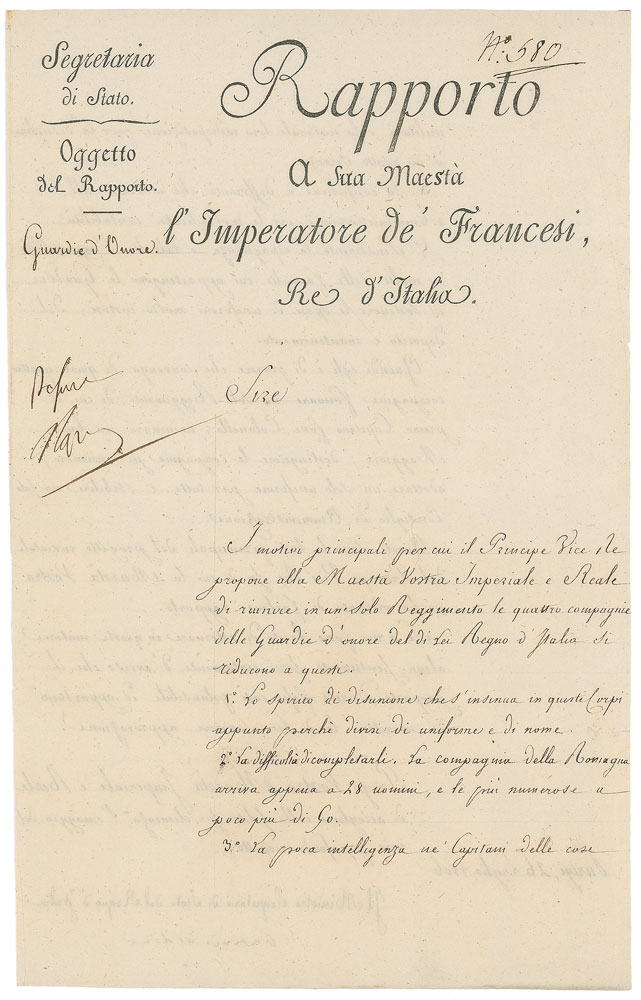 N.º 580
Segretaria
di Stato.
Oggetto
del Rapporto.
Guardie d'Onore.
Rapporto
A Sua Maestà
l'Imperatore de' Francesi,
Re d'Italia.
Sire
I motivi principali per cui il Principe Vice Re
propone alla Maestà Vostra Imperiale e Reale
di riunire in un solo Reggimento le quattro compagnie
delle Guardie d'onore del di Lei Regno d'Italia si
riducono a questi.
1.º Lo spirito di disunione che s'insinua in questi Corpi
appunto perchè divisi di uniforme e di nome.
2.º La difficoltà di completarli. La compagnia della Romagna
arriva appena a 28 uomini, e le più numerose a
poco più di 50.
3.º La poca intelligenza ne' Capitani delle cose